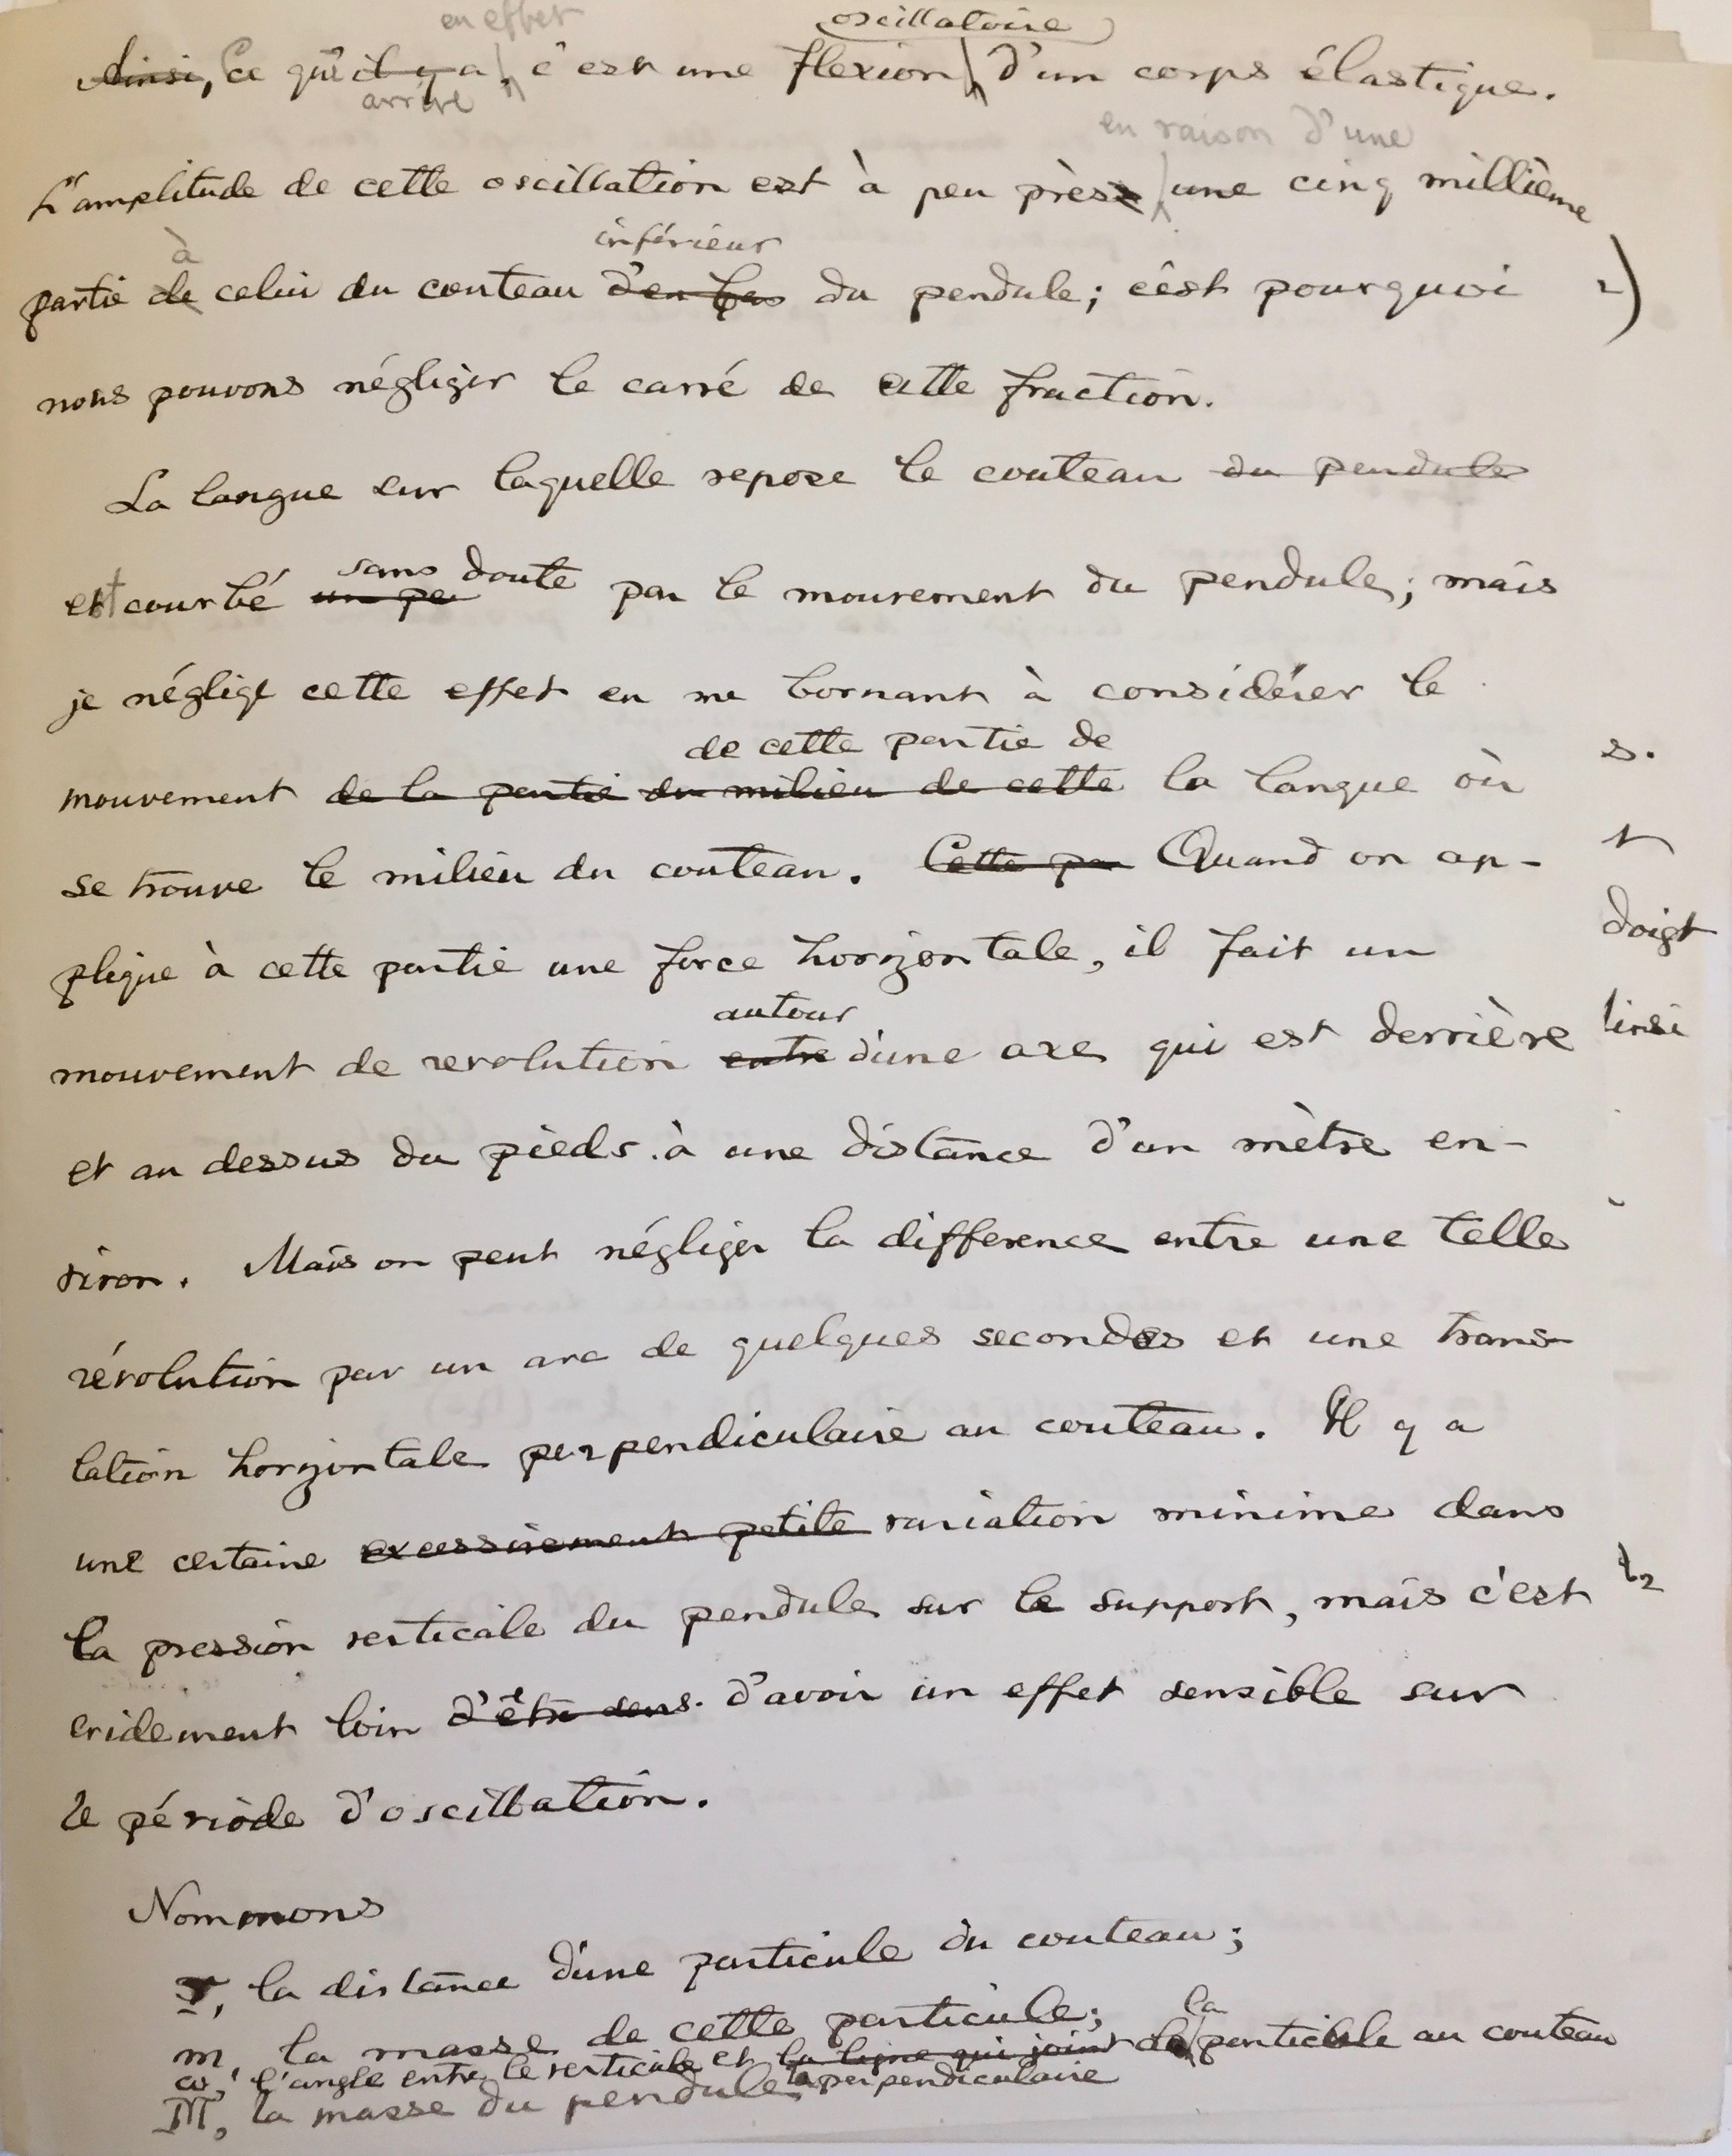 en effet oscillatoire
Ainsi, Ce qu'il y a, c'est une flexion d'un corps élastique.
arrive
en raison d'une
L'amplitude de cette oscillation est à peu près une cinq millième
à inférieur
partie de celui du couteau d'en bas du pendule; c'est pourquoi
nous pouvons négliger le carré de cette fraction.
La langue sur laquelle repose le couteau du pendule
sans doute
est courbé un peu par le mouvement du pendule; mais
je néglige cette effet en me bornant à considérer le
de cette partie de
mouvement de la partie du milieu de cette la langue où
se trouve le milieu du couteau. Cette pa Quand on ap-
plique à cette partie une force horizontale, il fait un
autour
mouvement de revolution entre d'une axe qui est derrière
et au dessus du pieds à une distance d'un mètre en-
viron. Mais on peut négliger la difference entre une telle
révolution par un arc de quelques secondes et une trans-
lation horizontale perpendiculaire au couteau. Il y a
une certaine excessivement petite variation minime dans
la pression verticale du pendule sur le support, mais c'est
evidement loin d'être sens. d'avoir un effet sensible sur
le période d'oscillation.
Nommons
r, la distance d'une particule du couteau;
m, la masse de cette particule;
la
ω, l'angle entre le verticale et la ligne qui joint de particule au couteau
la perpendiculaire
M, la masse du pendule
s.
doigt